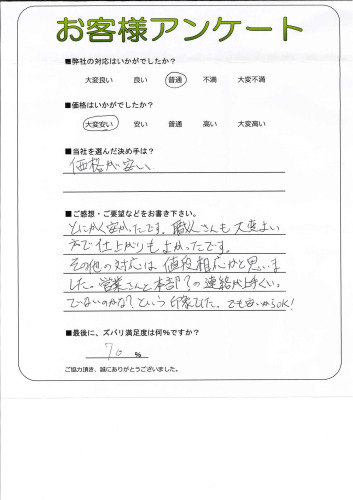 お客様アンケート
■弊社の対応はいかがでしたか？
大変良い 良い 普通 不満 大変不満
■価格はいかがでしたか？
大変安い 安い 普通 高い 大変高い
■当社を選んだ決め手は？
価格が安い
■ご感想・ご要望などをお書き下さい。
とにかく安かったです。職人さんも大変よい
方で仕上がりもよかったです。
その他の対応は値段相応かと思いま
した。営業さんと本部？の連絡が上手くいっ
ていないのかな？という印象でした。でも安いからOK！
■最後に、ズバリ満足度は何％ですか？
70 ％
ご協力頂き、誠にありがとうございました。